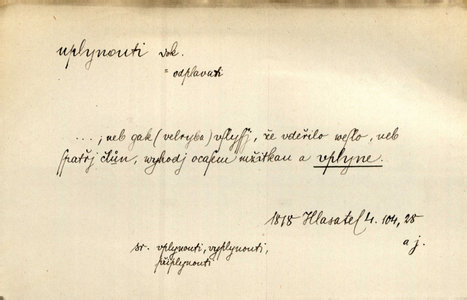 uplynouti dok.
= odplavati
...., neb gak (velryba) vslyssj, že vdeřilo weslo, neb
spatřj člun, wyhodj ocasem mžitkau a vplyne.
1818 Hlasatel 4. 104, 28
a j.
sr. vplynouti, vyplynouti,
připlynouti